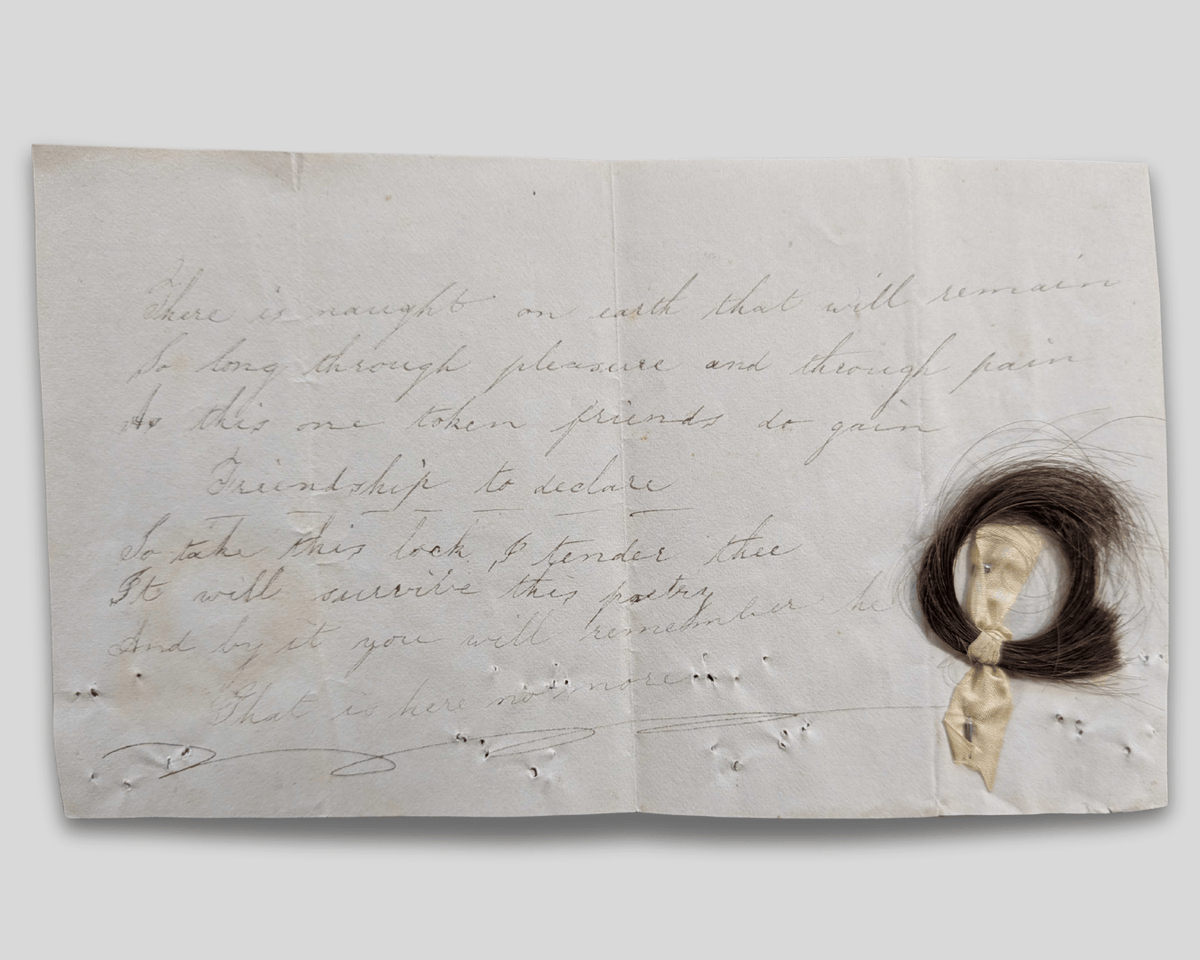 There is naught on earth that will remain
So long through pleasure and through pain
As this one token friends do gain
Friendship to declare
So take this lock I tender thee
It will survive this poetry
And by it you will remember he
That is here no more